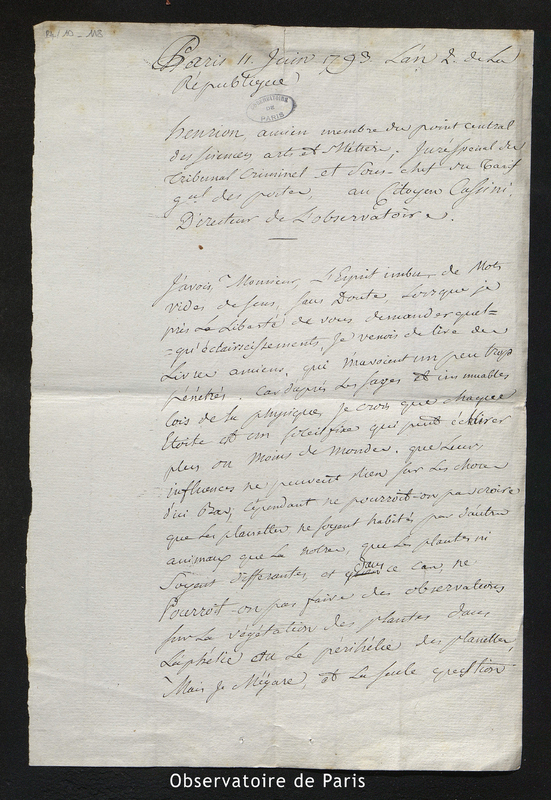 Paris 11. Juin 1793 L'an 2. de La
République
OBSERVATOIRE
DE
PARIS
henrion, ancien membre du point central
des sciences arts et Métiers, Juré spécial du
Tribunal Criminel et Sous-chef du Tarif
gal des postes, au Citoyen Cassini,
Directeur de L'observatoire.
J'avois, Monsieur, L'Esprit imbu, de Mots
vides de sens, sans Doute, Lorsque je
pris La Liberté de vous demander quel=
=qu'éclaircissements, Je venois de Lire des
Livres anciens, qui m'avoient un peu trop
pénétrés. Car d'après Les sages et immuables
Lois de la physique, Je crois que chaque
Etoile est un soleil fixe qui peut éclairer
plus ou Moins de Mondes. que Leurs
influences ne peuvent Rien sur Les choses
d'ici Bas, Cependant ne pourroit-on pas croire
que Les planettes ne soyent habités par d'autres
animaux que La notre, que Les plantes n'i
Soyent differantes, et dans ce cas, ne
Pourrot-on pas faire des observations
sur La végétation des plantes dans
L'aphélie ou Le périhélie des planettes,
Mais Je M'égare, et La seule question
Observatoire de Paris